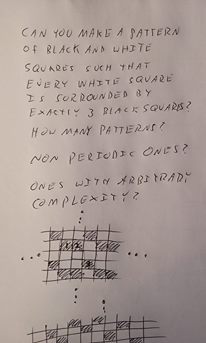 CAN YOU MAKE A PATTERN
OF BLACK AND WHITE
SQUARES SUCH THAT
EVERY WHITE SQUARE
IS SURROUNDED BY
EXACTLY 3 BLACK SQUARES?
HOW MANY PATTERNS?
NON PERIODIC ONES?
ONES WITH ARBITRARY
COMPLEXITY?